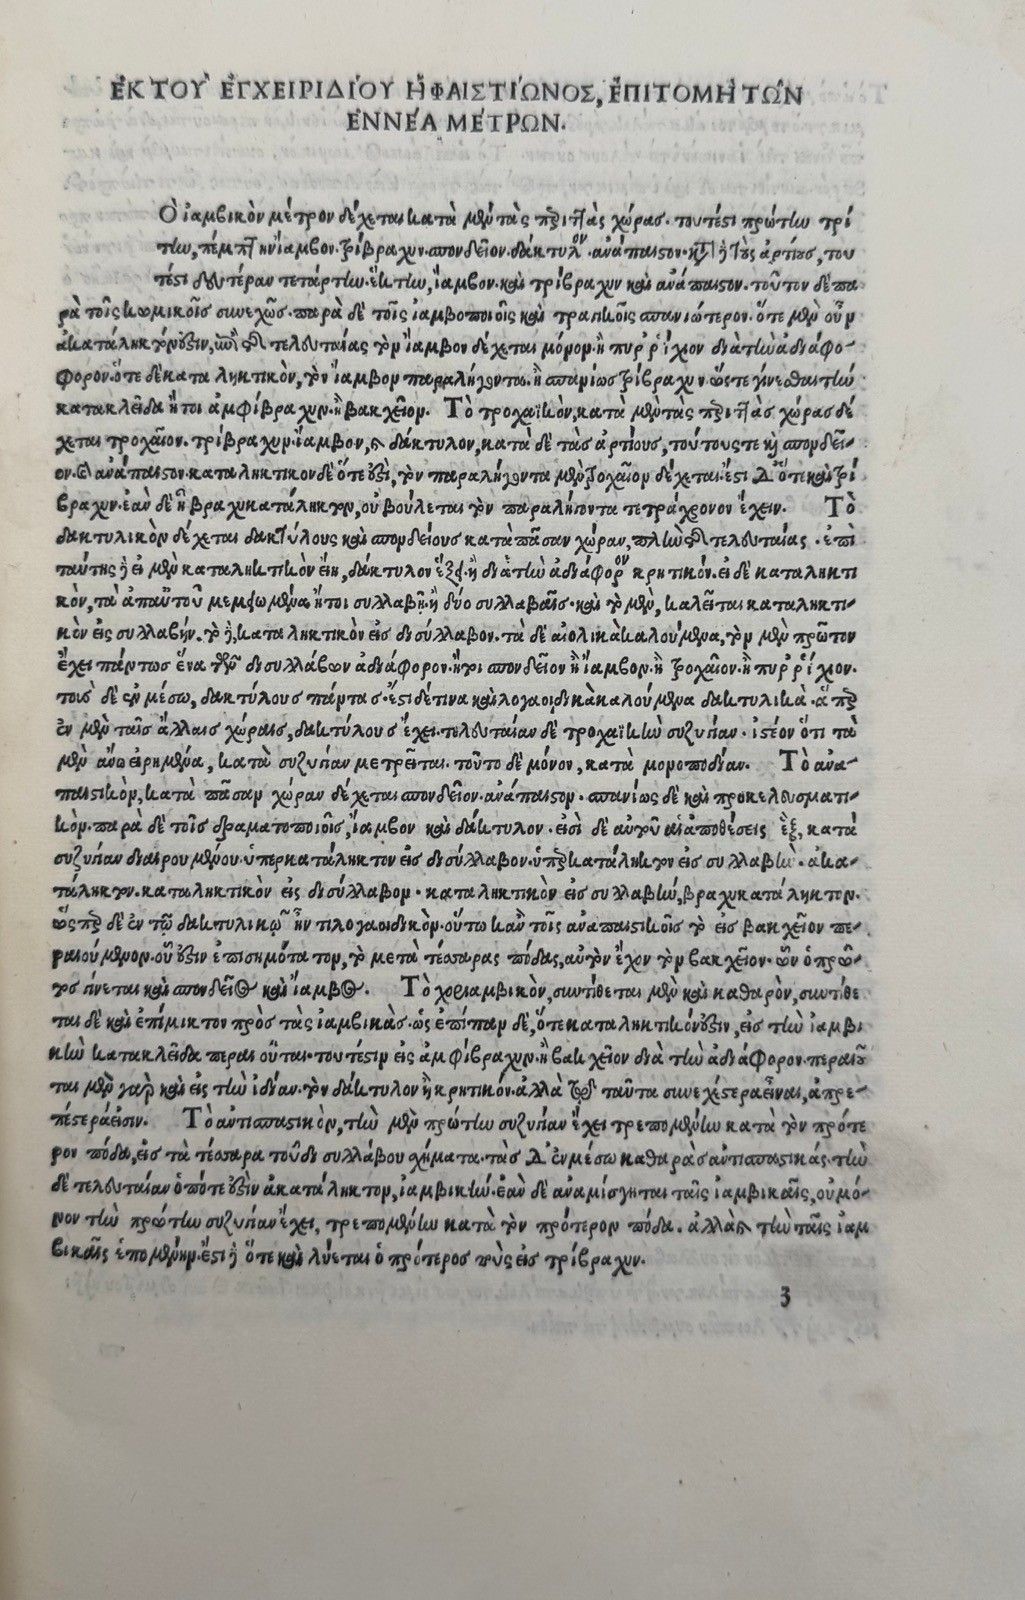 ἘΚ ΤΟΥ͂ ἘΓΧΕΙΡΙΔΊΟΥ ἩΦΑΙΣΤΊΩΝΟΣ, ἘΠΙΤΟΜῊ ΤΩ͂Ν
ἘΝΝΈΑ ΜΈΤΡΩΝ.
Ὁ ἰαμβικὸν μέτρον δέχεται κατὰ μὲν τὰς περιττὰς χώρας. τουτέστι πρώτην τρί
την, πέμπτην ἴαμβον. τρίβραχυν. σπονδεῖον. δάκτυλον. ἀνάπαιστον. κατὰ δὲ τοὺς ἀρτίους, του
τέστι δευτέραν τετάρτην. ἕκτην, ἴαμβον. καὶ τρίβραχυν καὶ ἀνάπαιστον. τοῦτον δὲ πα
ρὰ τοῖς κωμικοῖς συνεχῶς. παρὰ δὲ τοῖς ἰαμβοποιοῖς καὶ τραγικοῖς σπανιώτερον. ὅτε μὲν οὖν
ἀκατάληκτόν ἐστιν, ἐπὶ τῆς τελευταίας τὸν ἴαμβον δέχεται μόνον. ἢ πυρρίχιον διὰ τὴν ἀδιάφο-
φορον. ὅτε δὲ καταληκτικὸν, τὸν ἴαμβον παραλήγοντα. ἢ σπανίως τρίβραχυν. ὥστε γίνεσθαι τὴν
κατακλεῖδα ἤτοι ἀμφίβραχυν. ἢ βακχεῖον. Τὸ τροχαϊκὸν, κατὰ μὲν τὰς περιττὰς χώρας δέ
χεται τροχαῖον. τρίβραχυν. ἴαμβον, καὶ δάκτυλον, κατὰ δὲ τὰς ἀρτίους, τούτους τε καὶ σπονδεῖ-
ον. καὶ ἀνάπαιστον. καταληκτικὸν δὲ ὅτε ἐστὶ, τὸν παραλήγοντα μὲν τροχαῖον δέχεται. ἔστι δ' ὅτε καὶ τρί
βραχυν. ἐὰν δὲ ᾖ βραχυκατάληκτον, οὐ βούλεται τὸν παραλήγοντα τετράχρονον ἔχειν. Τὸ
δακτυλικὸν δέχεται δακτύλους καὶ σπονδείους κατὰ πᾶσαν χώραν, πλὴν τῆς τελευταίας. ἐπὶ
ταύτης δὲ εἰ μὲν καταληκτικὸν εἴη, δάκτυλον ἕξει. ἢ διὰ τὴν ἀδιάφορον κρητικόν. εἰ δὲ καταληκτι
κὸν, τὰ ἀπ' αὐτοῦ μεμειωμένα ἤτοι συλλαβῇ. ἢ δύο συλλαβαῖς. καὶ τὸ μὲν, καλεῖται καταληκτι-
κὸν εἰς συλλαβήν. τὸ δὲ, καταληκτικὸν εἰς δισύλλαβον. τὰ δὲ αἰολικὰ καλούμενα, τὸν μὲν πρῶτον
ἔχει πάντως ἕνα τῶν δισυλλάβων ἀδιάφορον. ἤτοι σπονδεῖον ἢ ἴαμβον. ἢ τροχαῖον. ἢ πυρρίχιον.
τοὺς δὲ ἐν μέσῳ, δακτύλους πάντας. ἔστι δέ τινα καὶ λογαοιδικὰ καλούμενα δακτυλικὰ. ἅπερ
ἐν μὲν ταῖς ἄλλαις χώραις, δακτύλους ἔχει. τελευταίαν δὲ τροχαϊκὴν συζυγίαν. ἰστέον ὅτι τὰ
μὲν ἄνω εἰρημένα, κατὰ συζυγίαν μετρεῖται. τοῦτο δὲ μόνον, κατὰ μονοποδίαν. Τὸ ἀνα-
παιστικὸν, κατὰ πᾶσαν χώραν δέχεται σπονδεῖον. ἀνάπαιστον. σπανίως δὲ καὶ προκελευσματι-
κὸν. παρὰ δὲ τοῖς δραματοποιοῖς, ἴαμβον καὶ δάκτυλον. εἰσὶ δὲ αὐτοῦ αἱ ἀποθέσεις ἓξ, κατὰ
συζυγίαν διαιρουμένου. ὑπερκατάληκτον εἰς δισύλλαβον. ὑπερκατάληκτον εἰς συλλαβὴν. ἀκα-
τάληκτον. καταληκτικὸν εἰς δισύλλαβον. καταληκτικὸν εἰς συλλαβήν, βραχυκατάληκτον.
ὥσπερ δὲ ἐν τῷ δακτυλικῷ ἦν τι λογαοιδικὸν. οὕτω κἀν τοῖς ἀναπαιστικοῖς τὸ εἰς βακχεῖον πε-
ραιούμενον. οὗ ἐστιν ἐπισημότατον, τὸ μετὰ τέσσαρας πόδας, αὐτὸν ἔχον τὸν βακχεῖον. ὧν ὁ πρῶ-
τος γίνεται καὶ σπονδεῖος καὶ ἴαμβος. Τὸ χοριαμβικὸν, συντίθεται μὲν καὶ καθαρὸν, συντίθε
ται δὲ καὶ ἐπίμικτον πρὸς τὰς ἰαμβικάς. ὡς ἐπίπαν δὲ, ὅτε καταληκτικόν ἐστιν, εἰς τὴν ἰαμβι
κὴν κατακλεῖδα περαιοῦται. τουτέστιν εἰς ἀμφίβραχυν. ἢ βακχεῖον διὰ τὴν ἀδιάφορον. περαιοῦ
ται μὲν γὰρ καὶ εἰς τὴν ἰδίαν. τὸν δάκτυλον ἢ κρητικόν. ἀλλὰ ταῦτα συνεχέστερα εἶναι, ἀπρε-
πέστερά εἰσιν. Τὸ ἀντισπαστικὸν, τὴν μὲν πρώτην συζυγίαν ἔχει τρεπομένην κατὰ τὸν πρότε
ρον πόδα, εἰς τὰ τέσσαρα τοῦ δισυλλάβου σχήματα. τὰς δ' ἐν μέσῳ καθαρὰς ἀντισπαστικάς. τὴν
δὲ τελευταίαν ὁπότε ἐστὶν ἀκατάληκτον, ἰαμβικήν. ἐὰν δὲ ἀναμίσγηται ταῖς ἰαμβικαῖς, οὐ μό-
νον τὴν πρώτην συζυγίαν ἔχει, τρεπομένην κατὰ τὸν πρότερον πόδα. ἀλλὰ καὶ τὴν ταῖς ἰαμ
βικαῖς ἑπομένην. ἔστι δὲ ὅτε καὶ λύεται ὁ πρότερος ποὺς εἰς τρίβραχυν.
3